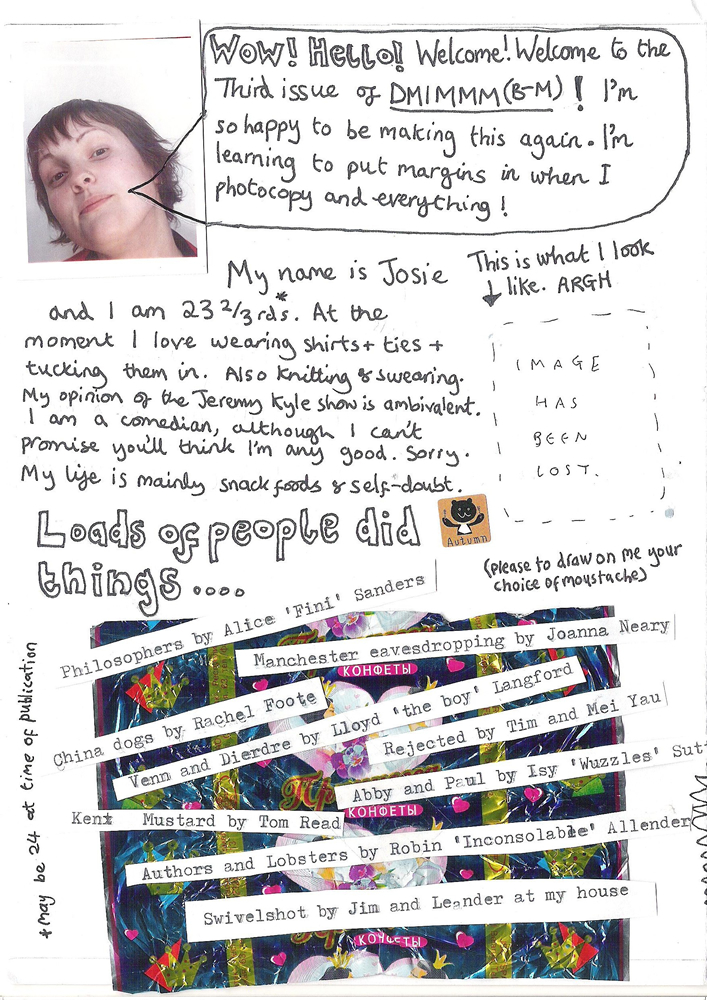 WOW! HELLO! Welcome! Welcome to the
Third issue of DMIMMM(B-M)! I'm
so happy to be making this again. I'm
learning to put margins in when I
photocopy and everything!
My name is Josie
and I am 23 2/3rds*. At the
moment I love wearing shirts + ties +
tucking them in. Also knitting & swearing.
My opinion of the Jeremy Kyle show is ambivalent.
I am a comedian, although I can't
promise you'll think I'm any good. Sorry.
My life is mainly snack foods & self-doubt.
This is what I look
like. ARGH
IMAGE
HAS
BEEN
LOST.
(please to draw on me your
choice of moustache)
Autumn
Loads of people did
things....
Philosophers by Alice 'Fini' Sanders
Manchester eavesdropping by Joanna Neary
КОНФЕТЫ
China dogs by Rachel Foote
Venn and Dierdre by Lloyd 'the boy' Langford
Rejected by Tim and Mei Yau
Abby and Paul by Isy 'Wuzzles' Sutt
КОНФЕТЫ
Kent Mustard by Tom Read
Authors and Lobsters by Robin 'Inconsolable' Allender
Swivelshot by Jim and Leander at my house
КОНФЕТЫ
*may be 24 at time of publication